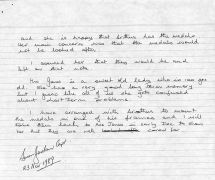 and she is happy that Arthur has the medals
her main concern was that the medals would
not be looked after.
I assured her that they would be and
left on this note.
Mrs Jones is a sweet old lady who is now
old. She has a very good long term memory
but like all of us she gets confused
about short term problems.
I have arranged with Arthur to mount
the medals in one of his frames and I will
take them back to Mrs Jones in early Dec to show
her that they are well cared for
23 Nov 1989